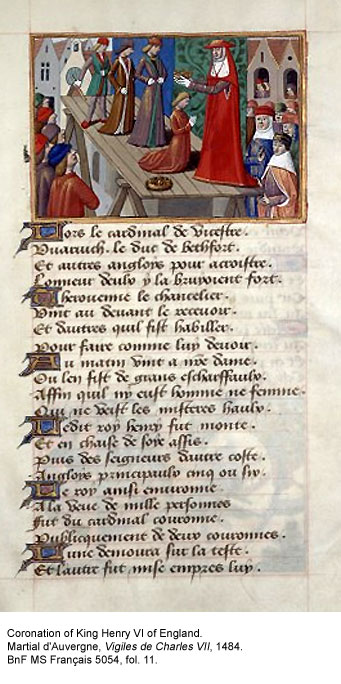 Lors le cardinal de vicestre.
Vvaruich le duc de bethfort.
Et autres angloys pour acroistre.
Lonneur deulo y la bruyoient fort.
Therouenne le chancelier.
Vint au devant le recevoir.
Et dautres quil fist habiller.
Pour faire comme luy devoir.
Au matin vint a nre dame.
Ou len fist de grans escharffaulx.
Affin quil ny eust homme ne femme.
Qui ne veist les misteres haulx.
Ledit roy henry fut monte.
Et en chaise de soye assis.
Puis des seigneurs dautre coste.
Angloys principaulx cinq ou six.
Le roy ainsi environne
A la veue de mille personnes
Fut du cardinal couronne.
Publicquement de deux couronnes.
Lune demoura sur la teste.
Et lautre fut mise empres luy.
Coronation of King Henry VI of England.
Martial d'Auvergne, Vigiles de Charles VII, 1484.
BnF MS Français 5054, fol. 11.